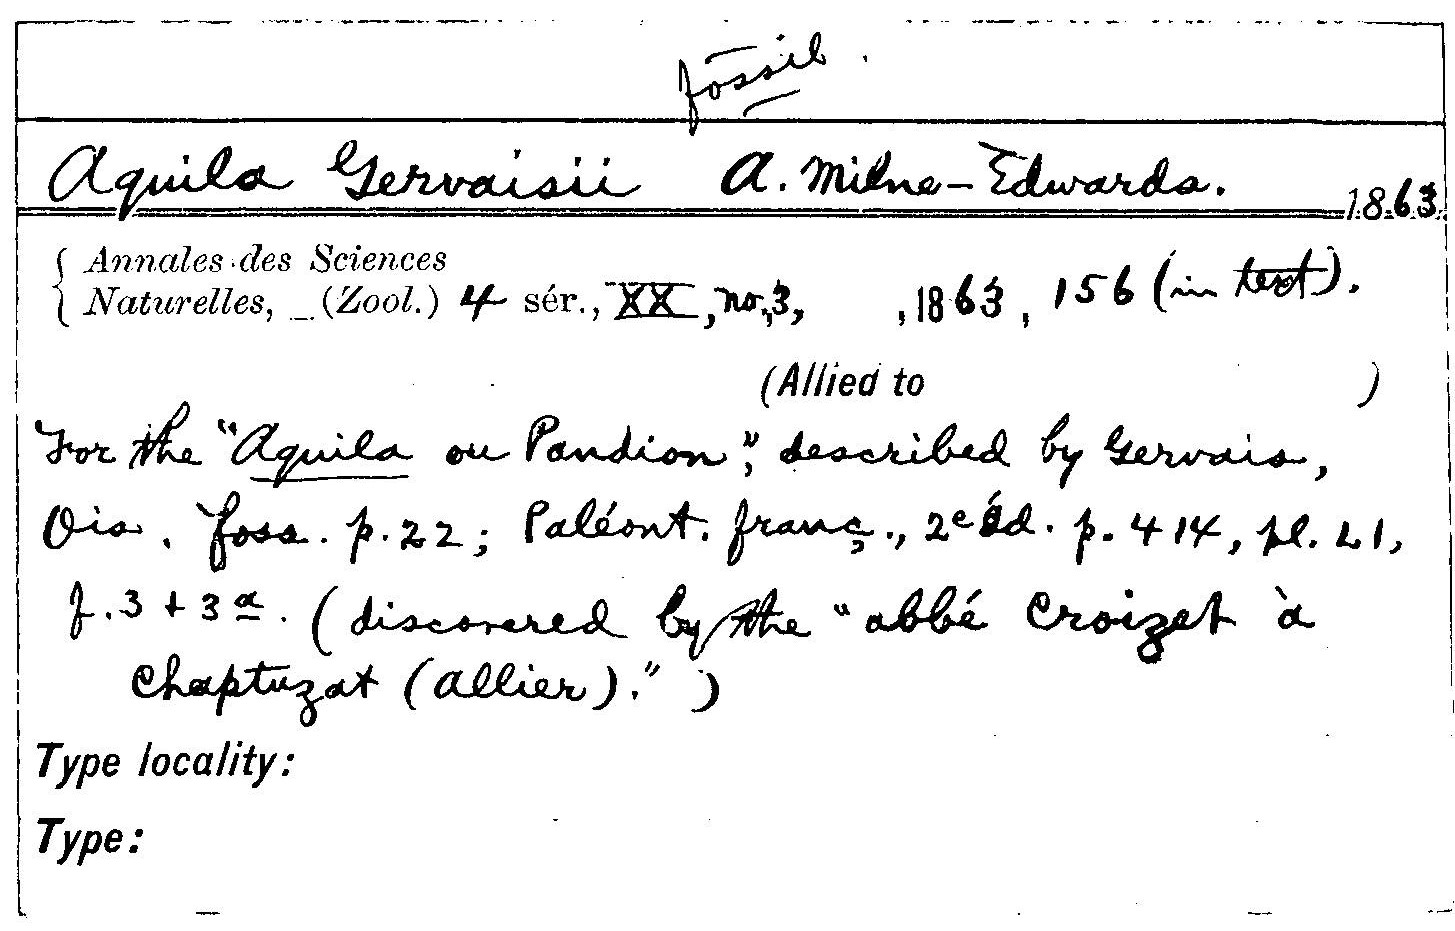 fossil.
Aquila Gervaisii A. Milne-Edwards. 1863.
Annales des Sciences
Naturelles, (Zool.) 4 sér., XX, no. 3, , 1863, 156 (in text).
(Allied to )
For the "Aquila ou Pandion", described by Gervais,
Ois. foss. p. 22; Paléont. franç., 2e éd. p. 414, pl. L1,
f. 3 + 3a. (discovered by the "abbé Croizet à
Chaptuzat (Allier)." )
Type locality:
Type: